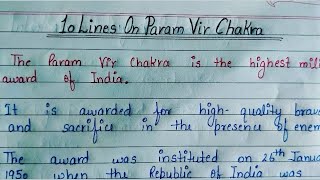 10 Lines On Param Vir Chakra
The Param Vir Chakra is the highest
award of India.
It is awarded for high-quality
and sacrifice in the presence of
The award was instituted on 26th
1950 when the Republic of India was